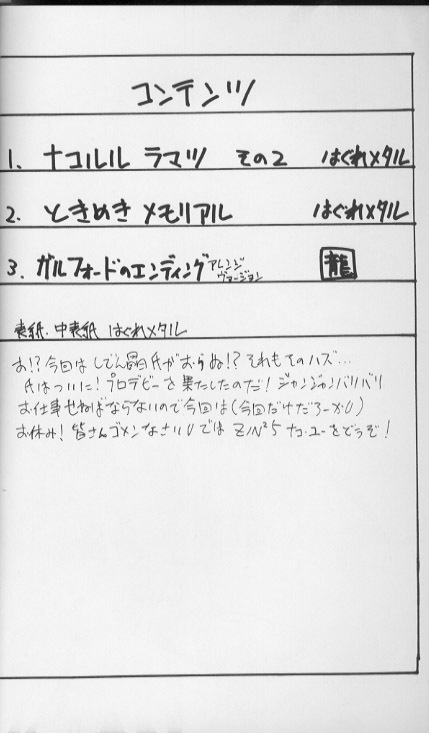 コンテンツ
1. ナコルル ラマツ その2 はぐれメタル
2. ときめきメモリアル はぐれメタル
3. ガルフォードのエンディング アレンジ ヴァージョン 龍
表紙・中表紙 はぐれメタル
お!?今回はしでん晶氏がおらぬ!?それもそのハズ…
氏はついに!プロデビーを果たしたのだ!ジャンジャンバリバリ
お仕事せねばならないので今回は(今回だけだろーが)
お休み!皆さんゴメンなさい では Z/Nº5 ナコ・ユーをどうぞ!